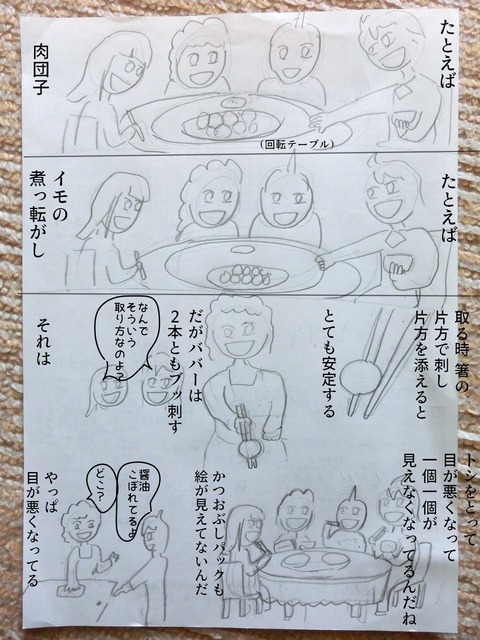 たとえば
肉団子
(回転テーブル)
たとえば
イモの
煮っ転がし
取る時 箸の
片方で刺し
片方を添えると
とても安定する
だがババーは
2本ともブッ刺す
なんで
そういう
取り方なのよっ
それは
トシをとって
目が悪くなって
一個一個が
見えなくなってるんだね
かつおぶしパックも
絵が見えてないんだ
醤油
こぼれてるよ
どこ?
やっぱ
目が悪くなってる